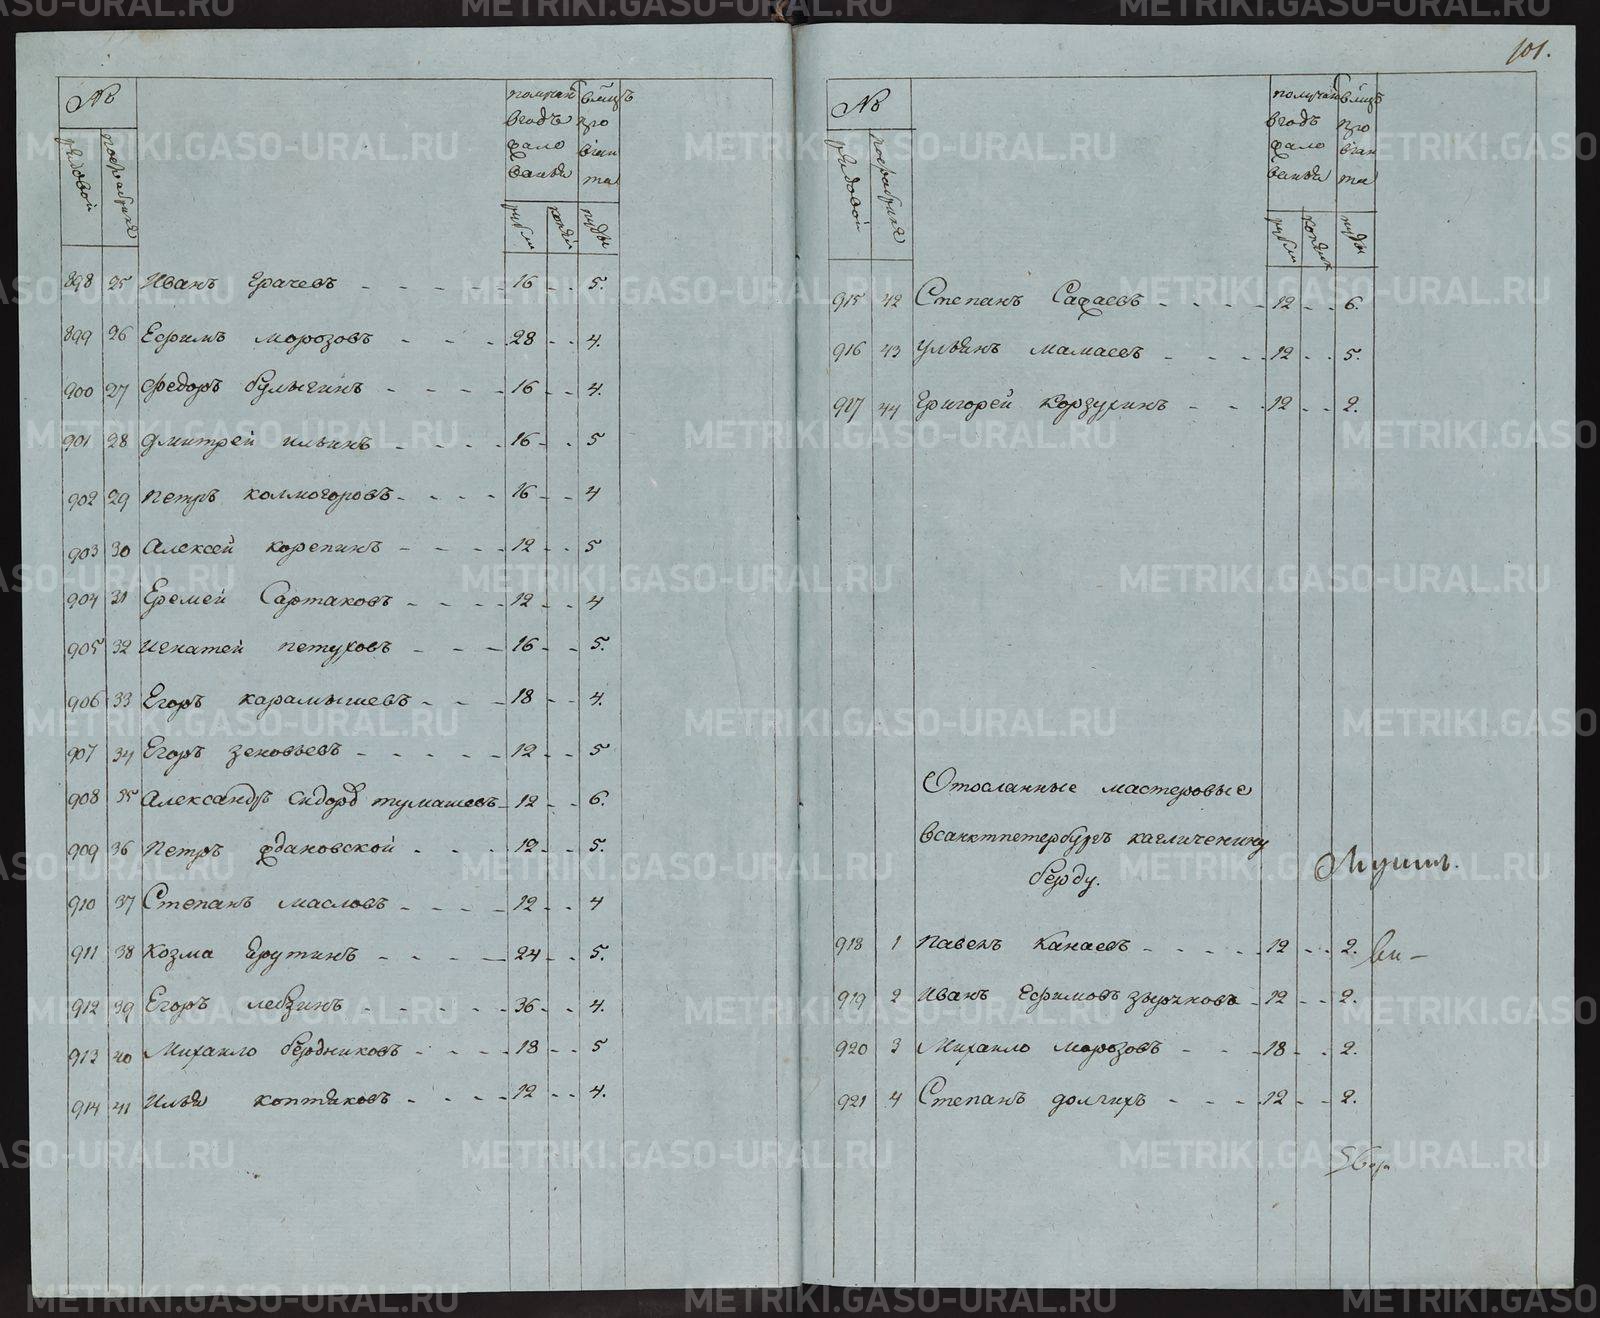 №
рядовой
пофабрике
получают в годъ жалованья
в мѣцъ провіянта
рубли
копѣй
пуды
898 25 Иванъ Грачевъ 16 - - 5.
899 26 Ефимъ морозовъ 28 - - 4.
900 27 Федоръ булыгинъ 16 - - 4.
901 28 дмитрей ильинъ 16 - - 5
902 29 петръ колмогоровъ 16 - - 4
903 30 Алексей корепинъ 12 - - 5
904 31 Еремей Сартаковъ 12 - - 4
905 32 игнатей петуховъ 16 - - 5.
906 33 Егоръ карамышевъ 18 - - 4.
907 34 Егоръ зеновьевъ 12 - - 5
908 35 Александръ Сидоровъ тумашевъ 12 - - 6.
909 36 петръ ждановской 12 - - 5.
910 37 Степанъ масловъ 12 - - 4
911 38 козма Ерутинъ 24 - - 5.
912 39 Егоръ лебзинъ 36 - - 4.
913 40 Михаило бердниковъ 18 - - 5
914 41 Илья коптяковъ 12 - - 4.
101.
№
рядовой
пофабрике
получают в годъ жалованья
в мѣцъ провіянта
рубли
копѣик
пуды
915 42 Степанъ Сафаевъ 12 - - 6.
916 43 ульянъ мамаевъ 12 - - 5.
917 44 Григорей корзухинъ 12 - - 2.
Отосланные мастеровые
всанктпетербургъ кагличенину
берду.
918 1 павелъ канаевъ 12 - - 2.
919 2 иванъ Ефимовъ зыряновъ 12 - - 2.
920 3 Михаило морозовъ 18 - - 2.
921 4 Степанъ долгихъ 12 - - 2.
METRIKI.GASO-URAL.RU